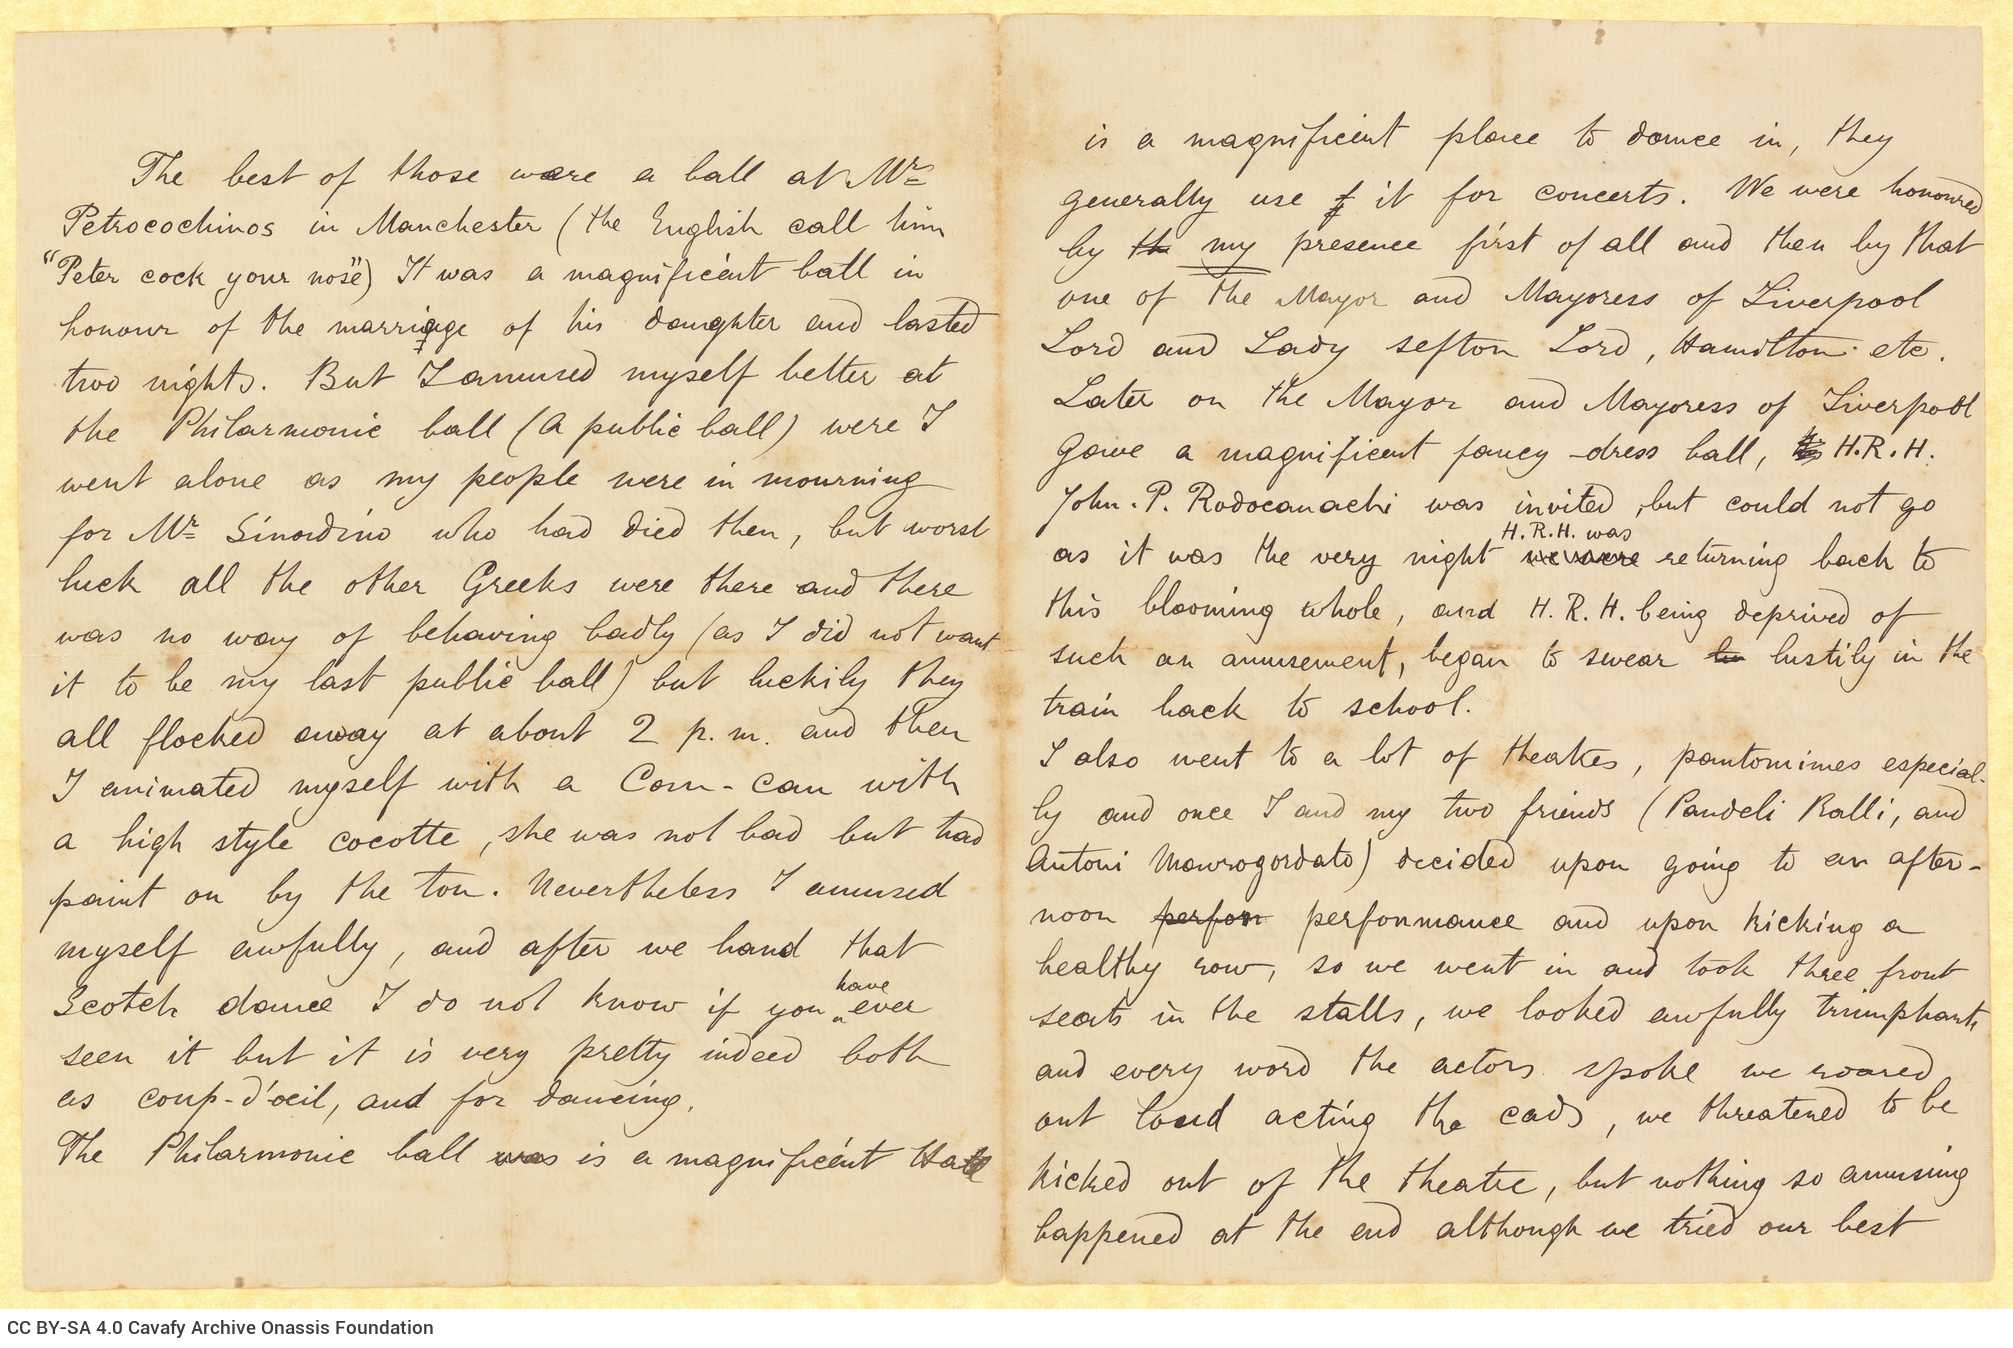 The best of those were a ball at Mr
Petrocochinos in Manchester (the English call him
"Peter cock your nose") It was a magnificent ball in
honour of the marriage of his daughter and lasted
two nights. But I amused myself better at
the Philarmonic ball (a public ball) were I
went alone as my people were in mourning
for Mr Sinadino who had died then, but worst
luck all the other Greeks were there and there
was no way of behaving badly (as I did not want
it to be my last public ball) but luckily they
all flocked away at about 2 p.m. and then
I animated myself with a Can-can with
a high style cocotte, she was not bad but had
paint on by the ton. Nevertheless I amused
myself awfully, and after we hand that
Scotch dance I do not know if you have ever
seen it but it is very pretty indeed both
as coup-d'oeil, and for dancing.
The Philarmonic ball was is a magnificent Hall
is a magnificent place to dance in, they
generally use it for concerts. We were honoured
by th my presence first of all and then by that
one of the Mayor and Mayoress of Liverpool
Lord and Lady Sefton Lord, Hamilton etc.
Later on the Mayor and Mayoress of Liverpool
gave a magnificent fancy-dress ball, H.R.H.
John. P. Rodocanachi was invited, but could not go
as it was the very night we were H.R.H. was returning back to
this blooming whole, and H.R.H. being deprived of
such an amusement, began to swear lustily in the
train back to school.
I also went to a lot of theatres, pantomimes especial-
ly and once I and my two friends (Pandeli Ralli, and
Antoni Mavrogordato) decided upon going to an after-
noon perfor performance and upon kicking a
healthy row, so we went in and took three front
seats in the stalls, we looked awfully triumphant
and every word the actors spoke we roared
out loud acting the cads, we threatened to be
kicked out of the theatre, but nothing so amusing
happened at the end although we tried our best
CC BY-SA 4.0 Cavafy Archive Onassis Foundation